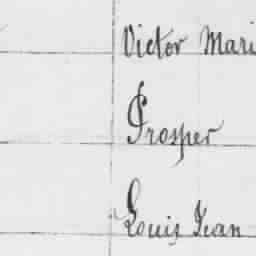 Victor Mari
Prosper
Louis Jean